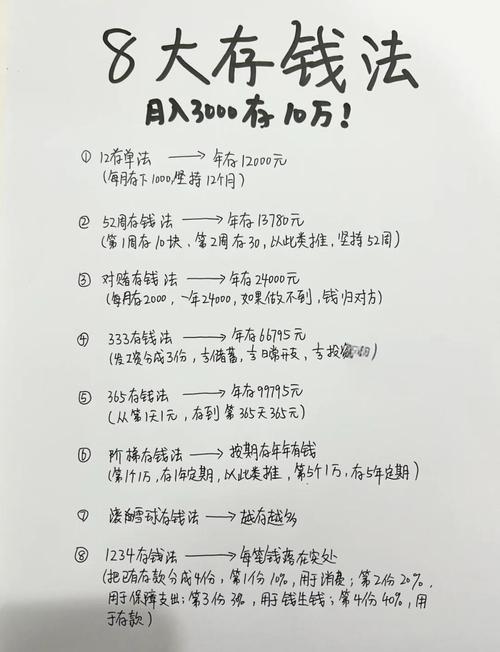 8大存钱法
月入3000存10万!
① 12存单法 → 年存12000元
(每月存下1000,坚持12个月)
② 52周存钱法 → 年存13780元
(第1周存10块、第2周存30,以此类推,坚持52周)
③ 对赌存钱法 → 年存24000元
(每月存2000,一年24000,如果做不到,钱归对方)
④ 333存钱法 → 年存66795元
(发工资分成3份,⅓储蓄,⅓日常开支,⅓投资)
⑤ 365存钱法 → 年存99795元
(从第1天1元,存到第365天365元)
⑥ 阶梯存钱法 → 按期存年年有钱
(第1个1万,存1年定期,以此类推,第5个1万,存5年定期)
⑦ 滚雪球存钱法 → 越存越多
⑧ 1234存钱法 → 每笔钱落在实处
(把已有存款分成4份,第1份10%,用于消费;第2份20%.
用于保障支出;第3份3%,用于钱生钱;第4份40%,用
于存款)